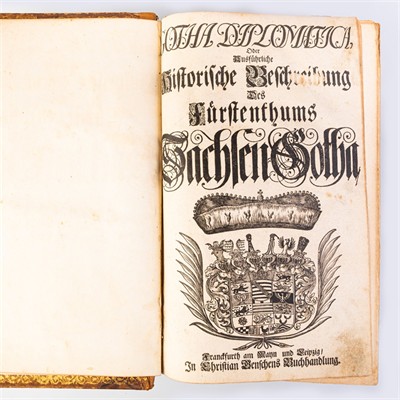 GOTHA DIPLOMATICA,
Oder
Ausführliche
Historische Beschreibung
Des
Fürstenthums
Sachsen Gotha
Franckfurth am Mayn und Leipzig/
In Christian Genschens Buchhandlung.